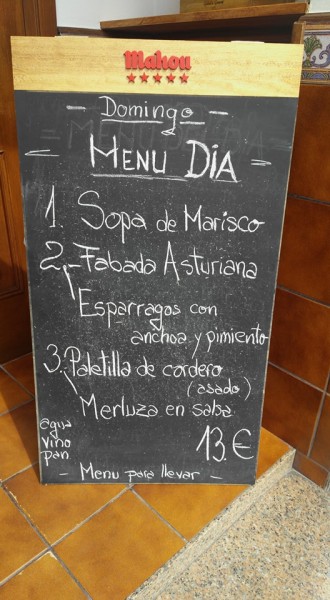 Mahou
- Domingo -
= MENU DÍA =
1. Sopa de Marisco
2.- Fabada Asturiana
Esparragos con
anchoa y pimiento
3. Paletilla de cordero
(asado)
Merluza en salsa
agua
vino
pan
13.€
- Menu para llevar -